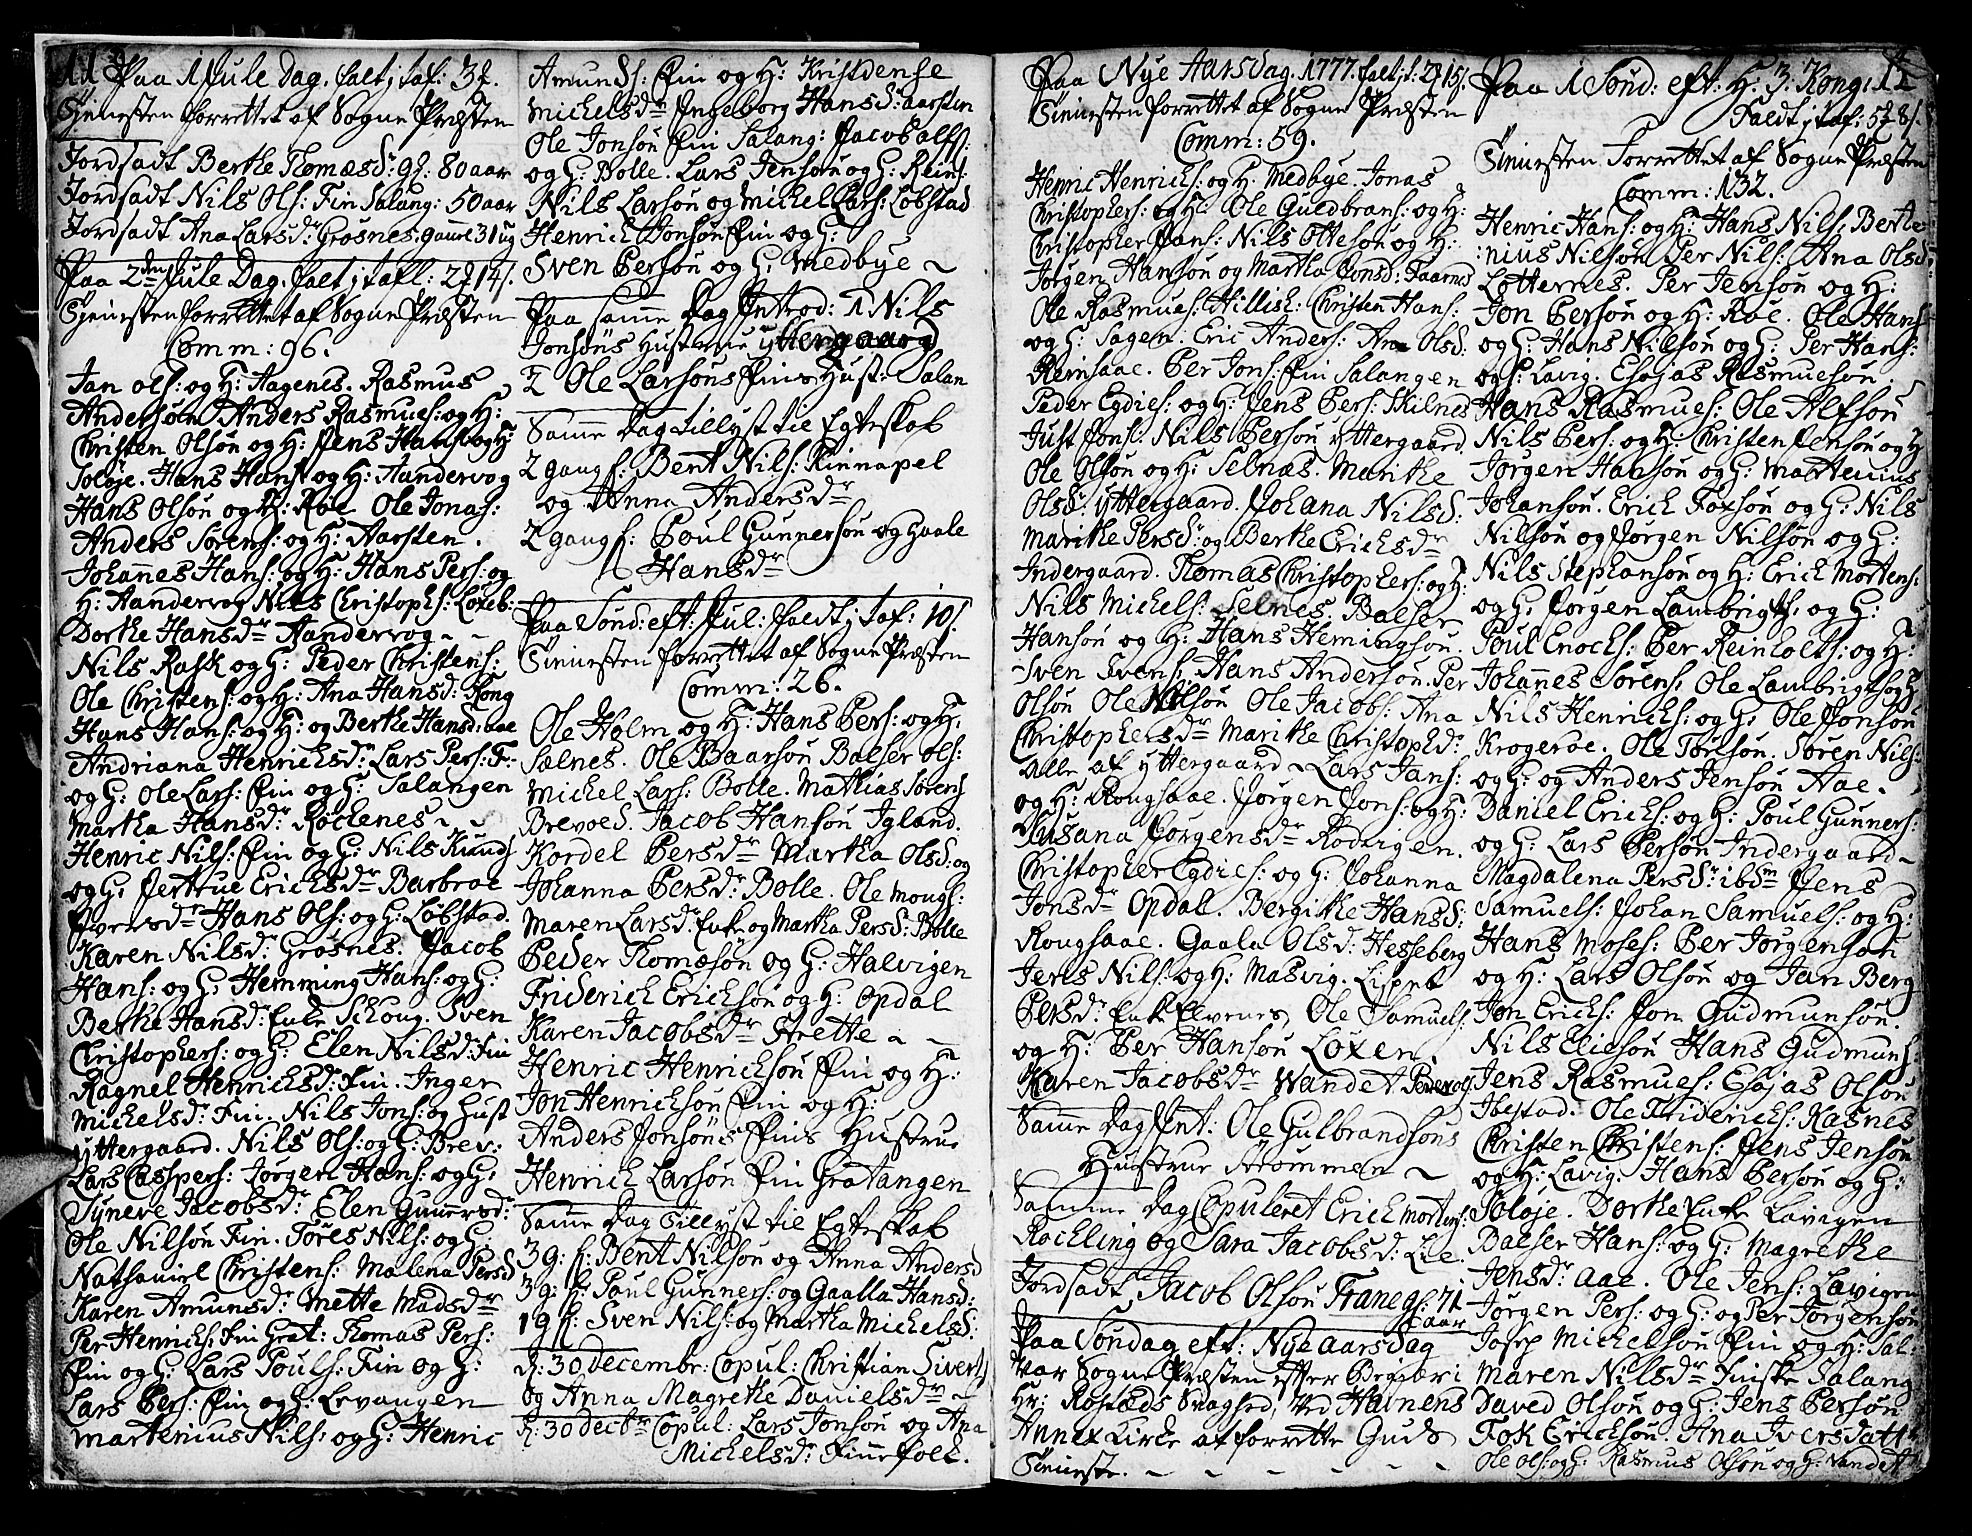 11 Paa 1 Jule Dag. falt i taf: 3 ℥.
Tienesten forrettet af Sogne Præsten
Jordfadt Berthe Thomæsdr: gl: 80 aar
Jordfadt Nils Ols: Fin Salang: 50 aar
Jordfadt Ana Larsdr: Grosnes. gamel 31 ug
Paa 2den Jule Dag. falt i tafl: 2 ℥ 14 s.
Tienesten forrettet af Sogne Præsten
Comm: 96.
Jan ols: og H: Aagenes. Rasmus
Andersøn Anders Rasmus: og H:
Christen Olsøn og H: Jens Hans: og H:
Soløje. Hans Hans: og H: Aandervog
Hans Olsøn og H: Røe Ole Jonas:
Anders Sørens: og H: Aarsten.
Johannes Hans: og H: Hans Pers: og
H: Aandervog Nils Christophs: Loxeb:
Dorthe Hansdr Aandervog
Nils Rask og H: Peder Christens:
Ole Christens: og H: Ana Hansd: Kong
Hans Hans: og H: og Berthe Hansd: aae
Andriana Henricksdr Lars Pers: F:
og H: Ole Lars: Fin og H: Salangen
Martha Hansdr Rochenes
Henric Nils: Fin og H: Nils Knuds
og H: Jertrue Ericksdr Barbroe
Iversdr Hans Ols: og H: Løbstad.
Karen Nilsdr Grosnes. Jacob
Hans: og H: Hemming Hans: og H:
Berthe Hansdr: Enke Schoug. Sven
Christophers: og H: Elen Nilsd: Fin
Ragnel Henricksd: Fin. Inger
Michelsdr Fin. Nils Jons: og Hust
Yttergaard. Nils Ols: og H: Brev:
Lars Caspers: Jørgen Hans: og H:
Syneve Jacobsdr Elen Gunersd:
Ole Nilsøn Fin. Tøres Nils: og H:
Nathaniel Christens: Malena Persd
Karen Amunsdr Mette Madsdr
Per Henrichs: Fin Grat: Thomas Pers:
Fin og H: Lars Pouls: Fin og H:
Lars Pers: Fin og H: Levangen
Martenius Nils: og H: Henric
Amunds: Fin og H: Kristdense
Michelsdr Ingeborg Hansd: Aarsten
Ole Jonsøn Fin Salang: Jacob alfs:
og H: Bolle. Lars Jensøn og H: Reins:
Nils Larsøn og Michel Lars: Løbstad
Henrich Jonsøn Fin og H:
Sven Persøn og H: Medbye
Paa samme Dag Introd: 1 Nils
Jonsøns Hustrue Yttergaard
2 Ole Larsøns Fins Hust: Salan
Samme Dag tillyst til Egteskab
2 gang f: Bent Nils: Kinnapel
og Anna Andersdr
2 gang f: Poul Gunnersøn og Gaale
Hansdr
Paa Sønd: eft: Jul: faldt i taf: 10 s.
Tienesten forrettet af Sogne Præsten
Comm: 26.
Ole Holm og H: Hans Pers: og H:
Sælnes. Ole Baarsøn Balser Ols:
Michel Lars: Bolle. Mathias Sørens
Brevoed. Jacob Hansøn Igland.
Kordel Persdr Martha Olsd: og
Johanna Persdr: Bolle. Ole Mougs:
Maren Larsdr Enke og Martha Persd: Bolle
Peder Thomæsøn og H: Halvigen
Friderich Ericksøn og H: Opdal
Karen Jacobsdr Strette
Henric Henricksøn Fin og H:
Jon Henricksøn Fin og H:
Anders Jonsøns Fins Hustrue
Henrich Larsøn Fin Gratangen
Samme Dag Tillyst til Egteskab
3 g: f: Bent Nilsøn og Anna Andersd
3 g: f: Poul Gunners: og Gaalla Hansd:
1 g f: Sven Nils: og Martha Michelsd:
d: 30 decembr: Copul: Christian Sivert
og Anna Magrethe Danielsdr
d: 30 decbr Copul: Lars Jonsøn og Ana
Michelsdr Finnefolk.
Paa Nye Aarsdag. 1777. falt i t. 2 ℥ 15 s.
Tienesten forrettet af Sogne Præsten
Comm: 59.
Henric Henricks: og H: Medbye. Jonas
Christophers: og H: Ole Guldbrans: og H:
Christopher Jans: Nils Ottesøn og H:
Jørgen Hansøn og Martha Jonsd: Faarnes
Ole Rasmus: Hillish: Christen Hans:
og H: Sagen. Eric Anders: Ana Olsd:
Reinsaae. Per Jons: Fin Salangen
Peder Egdies: og H: Jens Pers: Skilnes
Just Jons: Nils Persøn Yttergaard.
Ole Olsøn og H: Selnæs. Marithe
Olsd: Yttergaard. Johana Nilsd:
Marithe Persdr og Berthe Ericksdr
Indergaard. Thomas Christophers: og H:
Nils Michels: Selnes. Balser
Hansøn og H: Hans Hemingsøn.
Sven Svens: Hans Andersøn. Per
Olsøn Ole Nilsøn Ole Jacobs: Ana
Christophersdr Marithe Christophdr
alle af Yttergaard. Lars Jans:
og H: Rougsaae. Jørgen Jons: og H:
Susana Jørgensdr Rødvigen.
Christopher Egdies: og H: Johanna
Jonsdr Opdal. Bergithe Hansd:
Rougsaae. Gaala Olsd: Hesseberg
Jens Nils: og H: Masvig. Lispet
Persdr Enke Elvenes Ole Samuels:
og H: Per Hansøn Loxen.
Karen Jacobsdr Wandet
Samme Dag Int: Ole Gulbrandsøns
Hustrue Strømmen
Samme Dag Copuleret Erich Mortens:
Rochling og Sara Jacobsd: Lie
Jordfadt Jacob Olsøn Trane gl: 71
aar
Paa Søndag eft: Nyeaarsdag
Var Sogne Præsten efter Begiær i
Hr: Rosteds Svaghed, Ved Havnens
Annex Kirke at forrette Guds
Tieneste.
Paa 1 Sønd: eft: H: 3: Kong: 12
Faldt i taf: 5 ℥ 8 s.
Tienesten Forrettet af Sogne Præsten
Comm: 132.
Henric Hans: og H: Hans Nils: Berthe
nius Nielsøn Per Nils: Ana Olsd:
Lotternes. Per Jensøn og H:
Jon Persøn og H: Røe. Ole Hans:
og H: Hans Nilsøn og H: Per Hans:
og H: Lavig. Esajas Rasmusøn.
Hans Rasmus: Ole Alfsøn
Nils Pers: og H: Christen Jensøn og H
Jørgen Hansøn og H: Martenius
Johansøn. Erich Foxsøn og H: Nils
Nilsøn og Jørgen Nilsøn og H:
Nils Stephansøn og H: Erich Mortens:
og H: Jørgen Lambrigts: og H:
Poul Enochs: Per Reinholts: og H:
Johannes Sørens: Ole Lambrigts og H
Nils Henricks: og H: Ole Jonsøn
Krogerøe. Ole Torlsøn. Søren Nils:
og H: og Anders Jensøn Aae.
Daniel Ericks: og H: Poul Gunners:
og H: Lars Persøn Indergaard
Magdalena Persdr ibdm Jens
Samuels: Johan Samuels: og H:
Hans Moses: Per Jørgensøn
og H: Lars Olsøn og Jan Berg
Jon Ericks: Jon Gudmunsøn.
Nils Elissøn Hans Gudmuns:
Jens Rasmus: Esajas Olsøn
Ibestad. Ole Friderichs: Rasnes
Christen Christens: Jens Jensøn
og H: Lavig. Hans Persøn og H:
Soløje. Dorthe Enke Lavigen
Balser Hans: og H: Magrethe
Jensdr Aae. Ole Jens: Lavigen
Jørgen Pers: og H: og Per Jørgensøn
Josep Michelsøn Fin og H: Sal:
Maren Nilsdr Finske Salang
David Olsøn og H: Jens Persøn
Fok Ericksøn. Ana Iversdatt
Ole Ols: og H: Rasmus Olsøn og H: Vandet